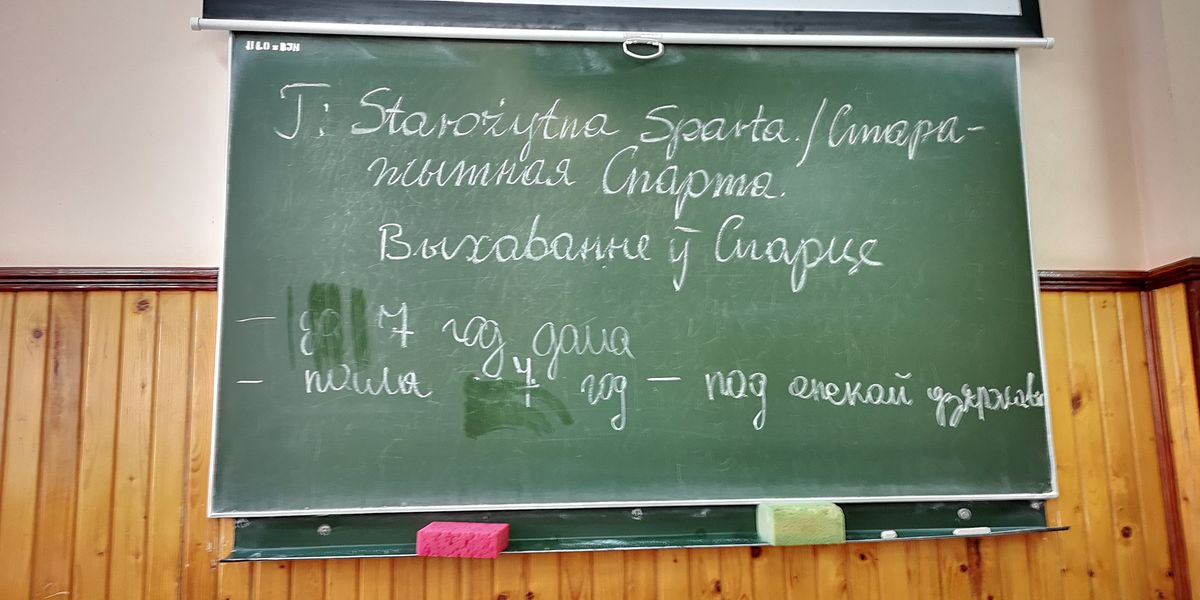 T: Starożytna Sparta./Стара-
жытная Спарта.
Выхаванне ў Спарце
— да 7 год дома
— посля 7 год — под опекай дзяржавы